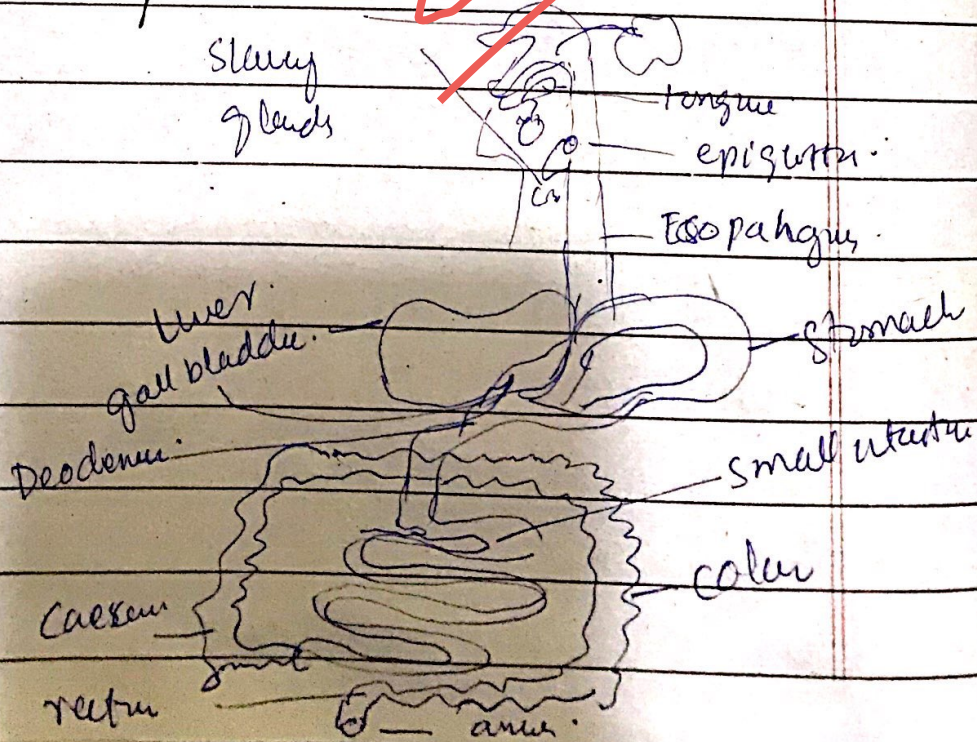 Slavey
glands
tongue
epiglotti.
Esopahgus.
Liver.
gall bladder.
stomach
Deodenum.
small intestine
colon
Caecum
rectum
anus.